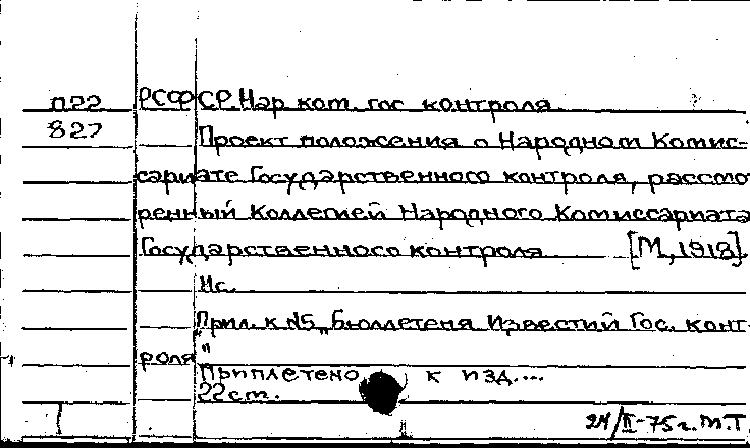 П22 РСФСР. Нар. ком. гос. контроля.
827 Проект положения о Народном Комис-
сариате Государственного контроля, рассмо
ренный Коллегией Народного Комиссариата
Государственного контроля [М, 1918].
Ис.
"Прил. к №5 „Бюллетеня Известий Гос. конт
роля"
Приплетено к изд....
22 ст.
24/II-75 г. М.Т.